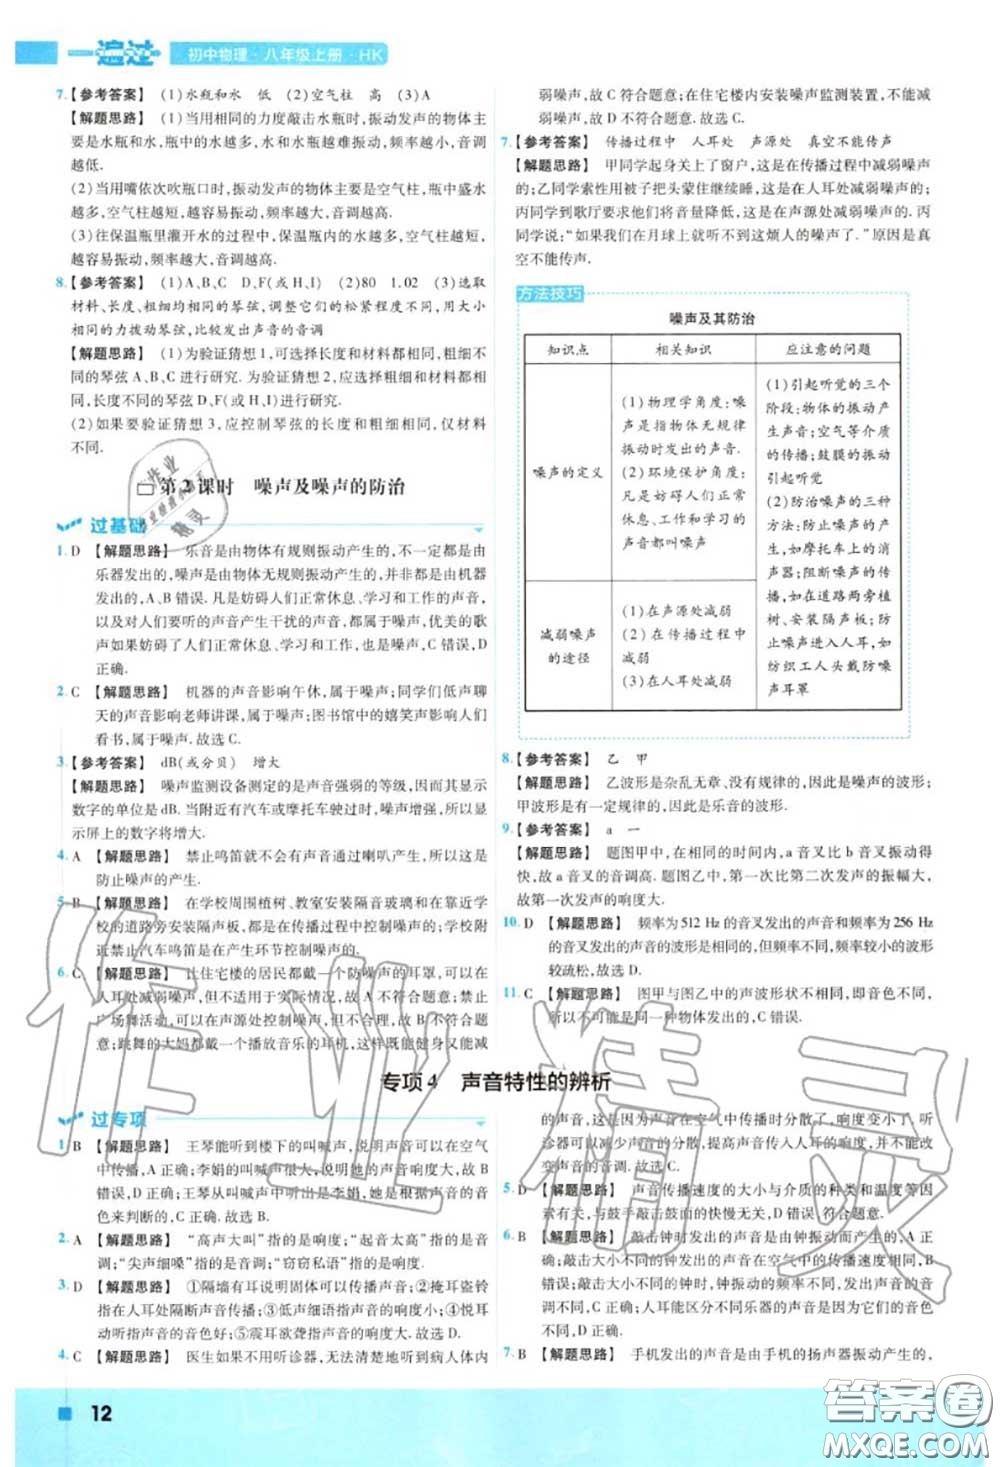 一遍过 初中物理·八年级上册·HK
7.【参考答案】 (1)水瓶和水 低 (2)空气柱 高 (3)A
【解题思路】 (1)当用相同的力度敲击水瓶时,振动发声的物体主
要是水瓶和水,瓶中盛水越多,水和水瓶越难振动,频率越小,音调
越低.
(2)当用嘴依次吹瓶口时,振动发声的物体主要是空气柱,瓶中盛水
越多,空气柱越短,越容易振动,频率越大,音调越高.
(3)往保温瓶里灌开水的过程中,保温瓶内的水越多,空气柱越短,
越容易振动,频率越大,音调越高.
8.【参考答案】 (1)A、B、C D、F(或H、I) (2)80 1.02 (3)选取
材料、长度、粗细均相同的琴弦,调整它们的松紧程度不同,用大小
相同的力拨动琴弦,比较发出声音的音调
【解题思路】 (1)为验证猜想1,可选择长度和材料都相同,粗细不
同的琴弦A、B、C进行研究.为验证猜想2,应选择粗细和材料都相
同,长度不同的琴弦D、F(或H、I)进行研究.
(2)如果要验证猜想3,应控制琴弦的长度和粗细都相同,仅材料
不同.
第2课时 噪声及噪声的防治
过基础
1. D 【解题思路】 乐音是由物体有规则振动产生的,不一定都是由
乐器发出的,噪声是由物体无规则振动产生的,并非都是由机器
发出的,A、B错误.凡是妨碍人们正常休息、学习和工作的声音,
以及对人们要听的声音产生干扰的声音,都属于噪声,优美的歌
声如果妨碍了人们正常休息、学习和工作,也属于噪声,C错误,D
正确.
2. C 【解题思路】 机器的声音影响午休,属于噪声;同学们低声聊
天的声音影响老师讲课,属于噪声;图书馆中的嬉笑声影响人们
看书,属于噪声.故选C.
3.【参考答案】 dB(或分贝) 增大
【解题思路】 噪声监测设备测定的是声音强弱的等级,因而其显示
数字的单位是dB.当附近有汽车或摩托车驶过时,噪声增强,所以显
示屏上的数字将增大.
4. A 【解题思路】 禁止鸣笛就不会有声音通过喇叭产生,所以这是
防止噪声的产生.
5. B 【解题思路】 在学校周围植树、教室安装隔音玻璃和在靠近学
校的道路旁安装隔声板,都是在传播过程中控制噪声的;学校附
近禁止汽车鸣笛是在产生环节控制噪声的.
6. C 【解题思路】 让住宅楼的居民都戴一个防噪声的耳罩,可以在
人耳处减弱噪声,但不适用于实际情况,故A不符合题意;禁止
广场舞活动,可以在声源处控制噪声,但不可取,故B不符合题
意;跳舞的大妈都戴一个播放音乐的耳机,这样既能健身又能减
弱噪声,故C符合题意;在住宅楼内安装噪声监测装置,不能减
弱噪声,故D不符合题意.故选C.
7.【参考答案】 传播过程中 人耳处 声源处 真空不能传声
【解题思路】 甲同学起身关上了窗户,这是在传播过程中减弱噪声
的;乙同学索性用被子把头蒙住继续睡,这是在人耳处减弱噪声的;
丙同学到歌厅要求他们将音量降低,这是在声源处减弱噪声的.丙
同学说:“如果我们在月球上就听不到这烦人的噪声了.”原因是真
空不能传声.
方法技巧
噪声及其防治
知识点 相关知识 应注意的问题
噪声的定义
(1)物理学角度:噪
声是指物体无规律
振动时发出的声音.
(2)环境保护角度:
凡是妨碍人们正常
休息、工作和学习的
声音都叫噪声
减弱噪声
的途径
(1)在声源处减弱
(2)在传播过程中
减弱
(3)在人耳处减弱
(1)引起听觉的三个
阶段:物体的振动产
生声音;空气等介质
的传播;鼓膜的振动
引起听觉.
(2)防治噪声的三种
方法:防止噪声的产
生,如摩托车上的消
声器;阻断噪声的传
播,如在道路两旁植
树、安装隔声板;
防止噪声进入人耳,如
纺织工人头戴防噪
声耳罩
8.【参考答案】 乙 甲
【解题思路】 乙波形是杂乱无章、没有规律的,因此是噪声的波形;
甲波形是有一定规律的,因此是乐音的波形.
9.【参考答案】 a 一
【解题思路】 题图甲中,在相同的时间内,a音叉比b音叉振动得
快,故a音叉的音调高.题图乙中,第一次比第二次发声的振幅大,
故第一次发声的响度大.
10. D 【解题思路】 频率为512 Hz的音叉发出的声音和频率为256 Hz
的音叉发出的声音的波形是相同的,但频率不同,频率较小的波形
较疏松,故选D.
11. C 【解题思路】 图甲与图乙中的声波形状不相同,即音色不同,
所以不可能是同一种物体发出的,C错误.
专项4 声音特性的辨析
过专项
1. B 【解题思路】 王琴能听到楼下的叫喊声,说明声音可以在空气
中传播,A正确;李娟的叫喊声很大,说明她的声音响度大,故B
错误,D正确;王琴从叫喊声中听出是李娟,她是根据声音的音
色来判断的,C正确.故选B.
2. A 【解题思路】 “高声大叫”指的是响度;“起音太高”指的是音
调;“尖声细嗓”指的是音调;“窃窃私语”指的是响度.
3. D 【解题思路】 ①隔墙有耳说明固体可以传播声音;②掩耳盗铃
指在人耳处隔断声音传播;③低声细语指声音的响度小;④悦耳
动听指声音的音色好;⑤震耳欲聋指声音的响度大.故选D.
4. C 【解题思路】 医生如果不用听诊器,无法清楚地听到病人体内
的声音,这是因为声音在空气中传播时分散了,响度变小了.听
诊器可以减少声音的分散,提高声音传入人耳的响度,并不能改
变声音的音调.故选C.
5. D 【解题思路】 声音传播速度的大小与介质的种类和温度等因
素有关,与鼓手敲击鼓面的快慢无关,D错误,符合题意.
6. B 【解题思路】 敲击钟时发出的声音是由钟振动而产生的,A正
确;敲击大小不同的钟发出的声音在空气中的传播速度相同,B
错误;敲击大小不同的钟时,钟振动的频率不同,发出的声音的
音调不同,C正确;人耳能区分不同乐器的声音是因为它们的音色
不同,D正确.
7. B 【解题思路】 手机发出的声音是由手机的扬声器振动产生的,
12
作业精灵
答案圈
MXQE.COM